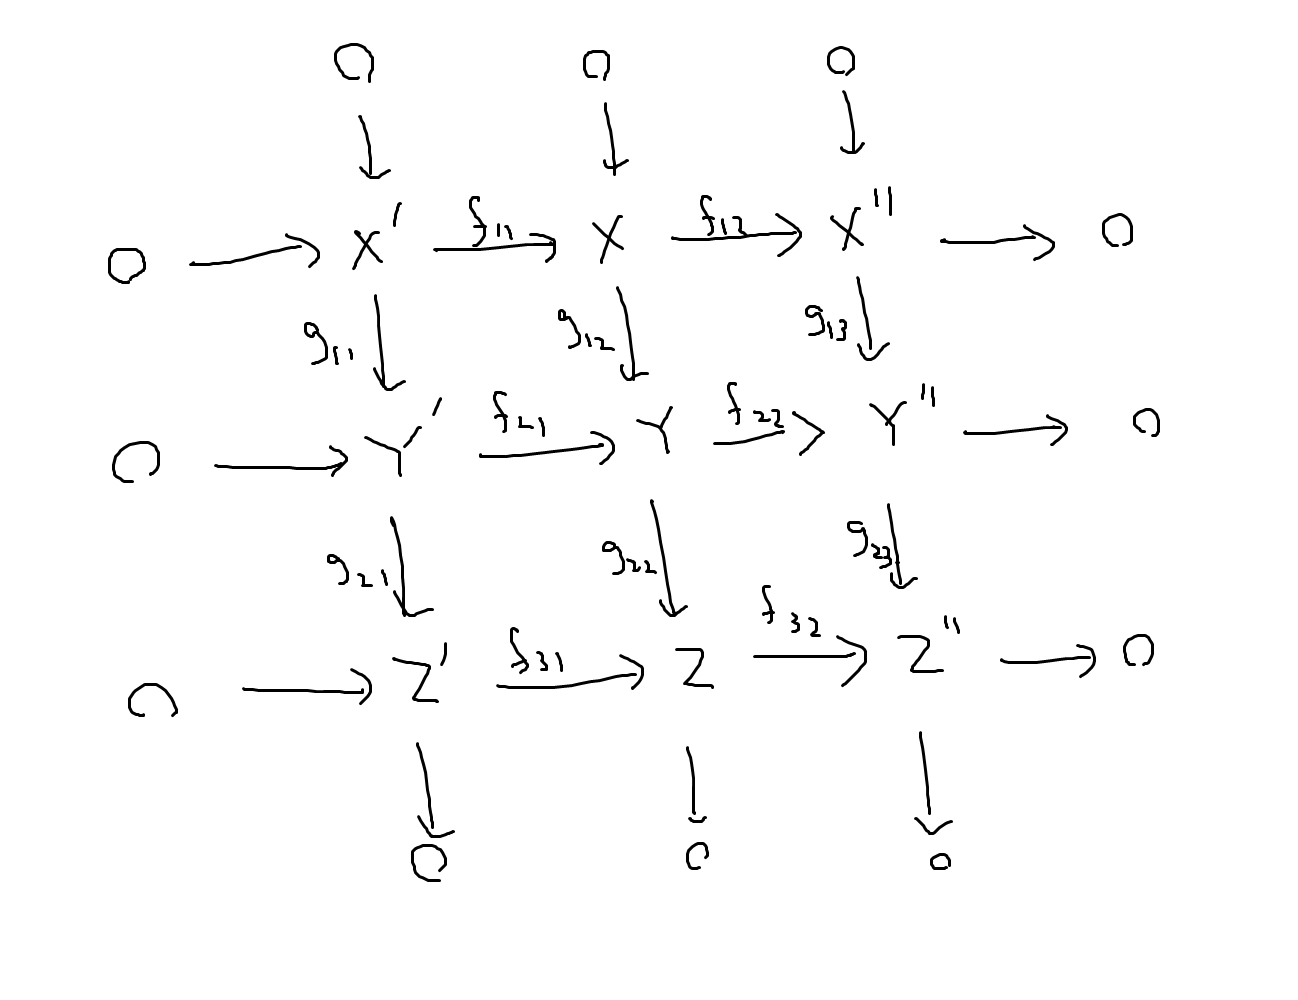 0 0 0
0 → X' f₁₁ → X f₁₂ → X'' → 0
g₁₁ g₁₂ g₁₃
0 → Y' f₂₁ → Y f₂₂ → Y'' → 0
g₂₁ g₂₂ g₂₃
0 → Z' f₃₁ → Z f₃₂ → Z'' → 0
0 0 0